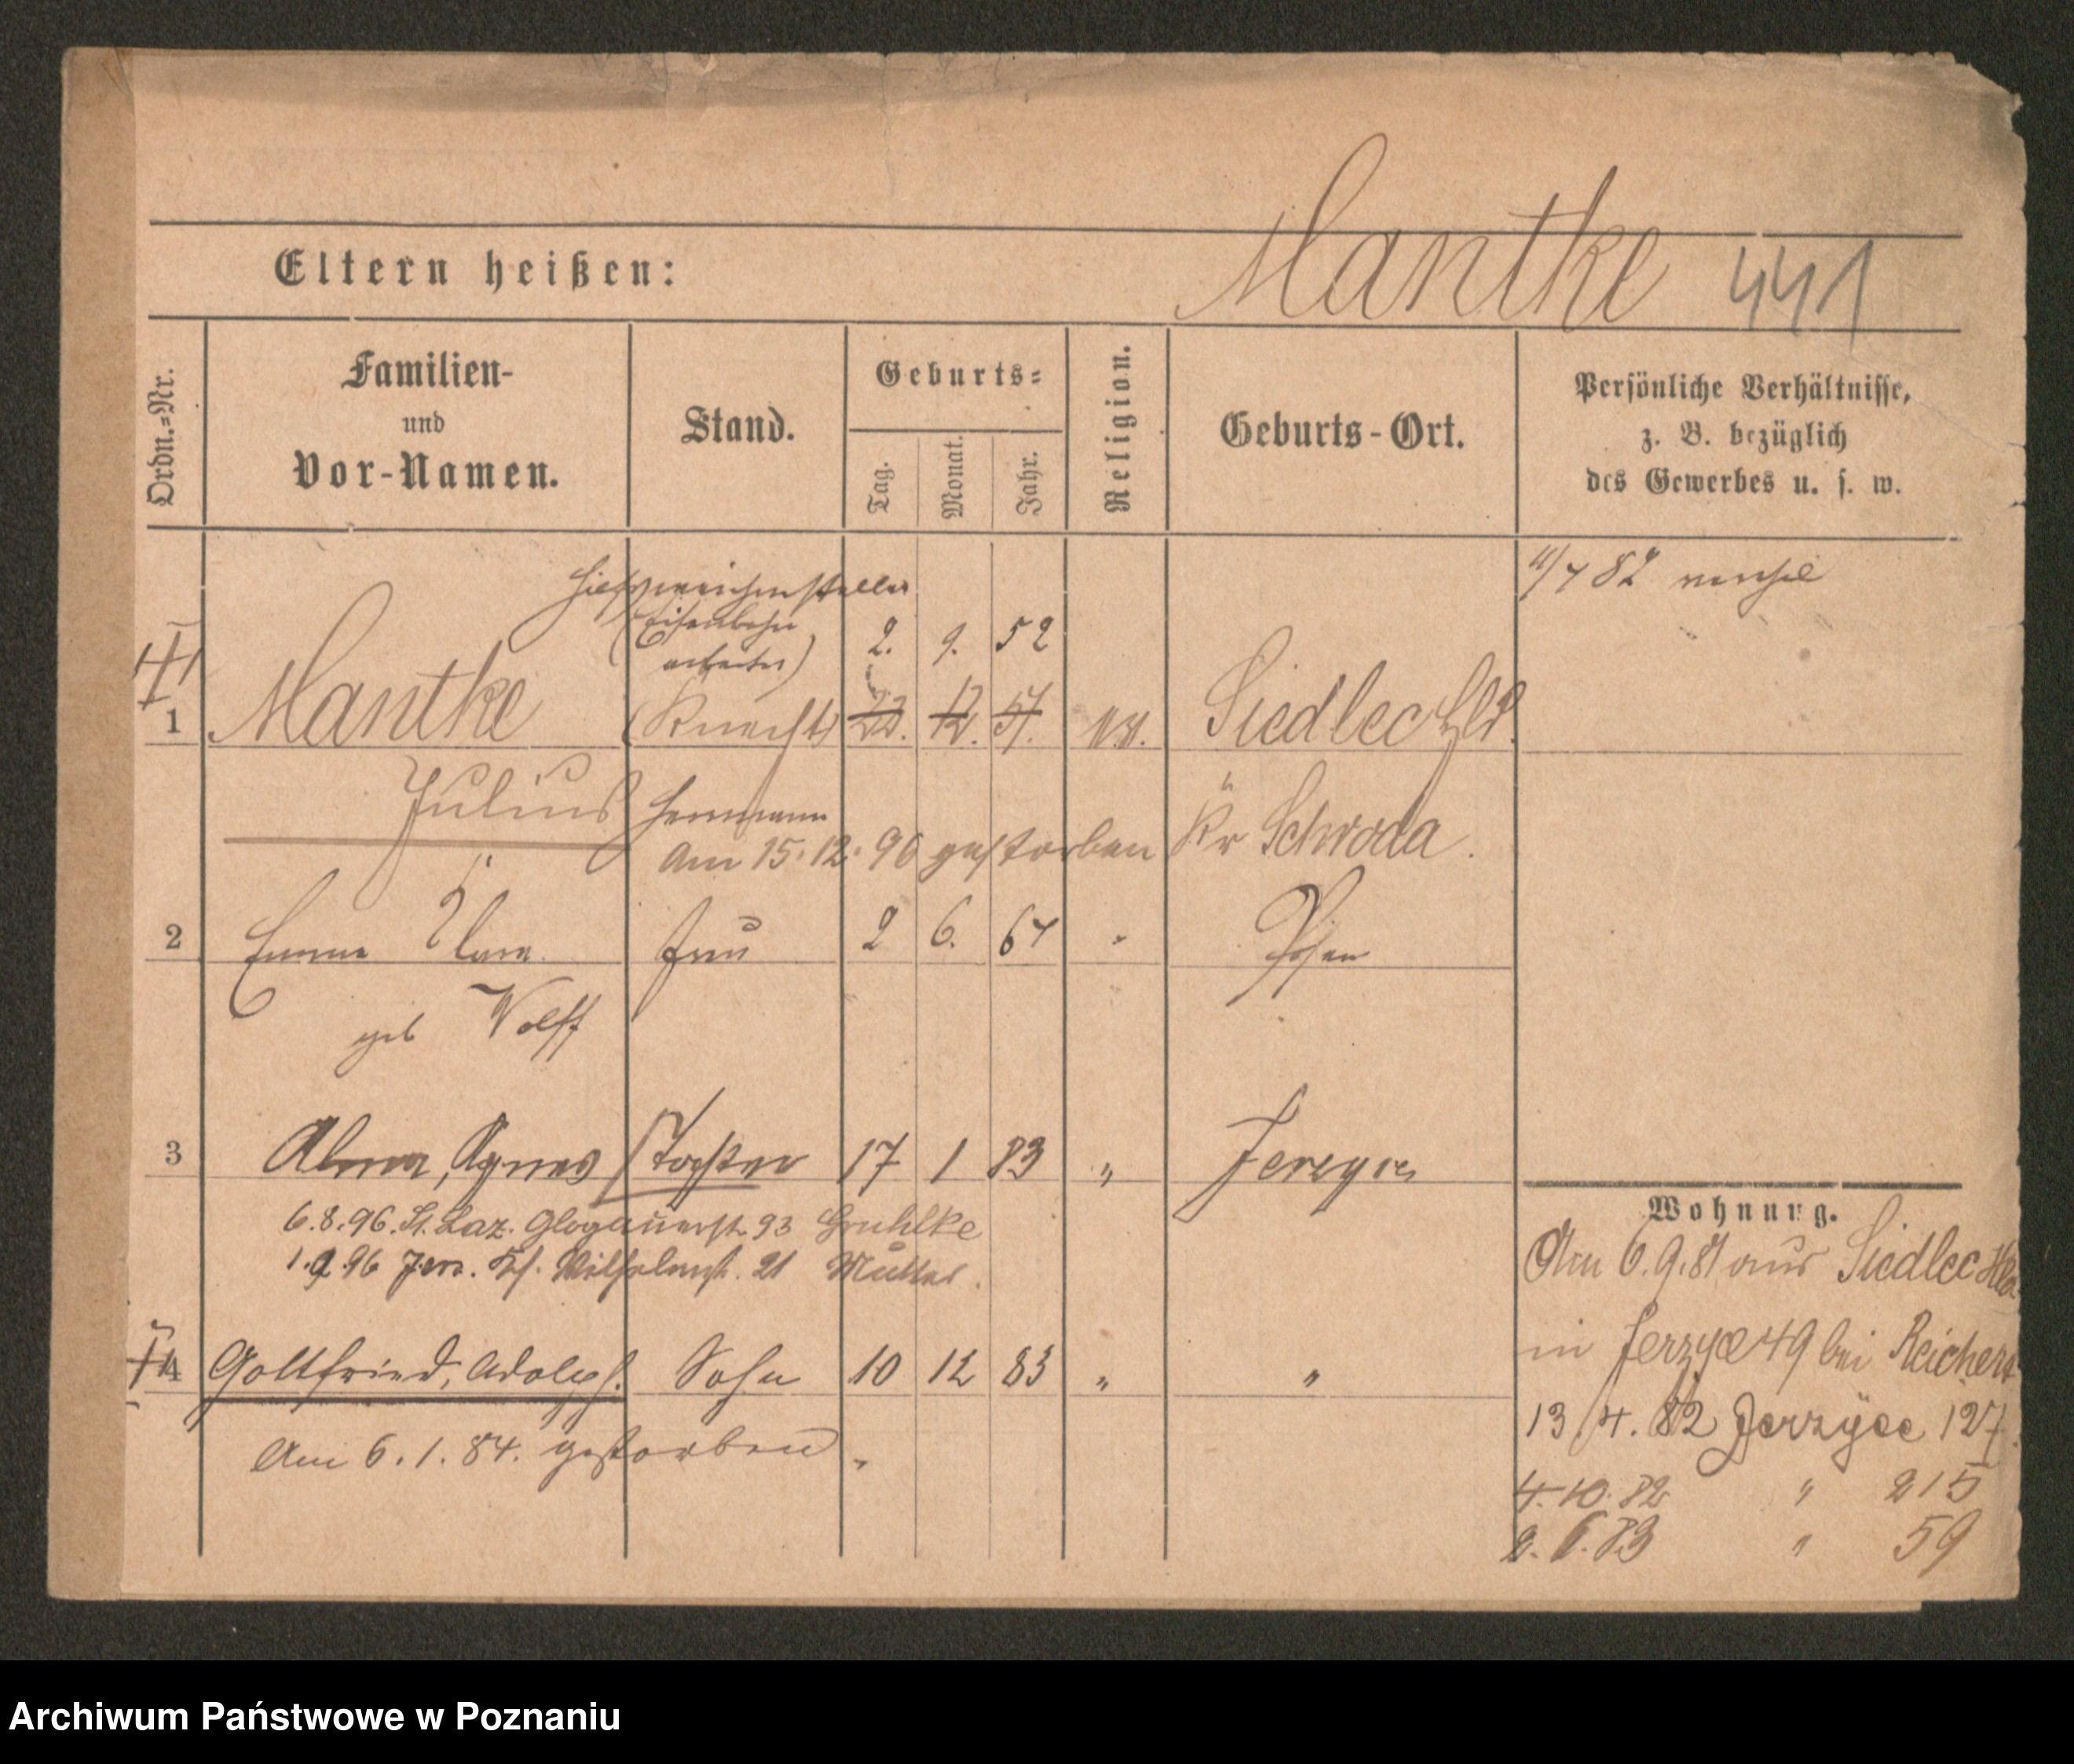 Mantke 441
Eltern heißen:
Ordn.=Nr.
Familien-
und
Vor-Namen.
Stand.
Geburts=
Tag.
Monat.
Jahr.
Religion.
Geburts-Ort.
Persönliche Verhältnisse,
z. B. bezüglich
des Gewerbes u. s. w.
Hilfsweichensteller
(Eisenbahn
arbeiter)
2. 9. 52
1 Mantke (Knecht) 22. 12. 57. Siedlec Hld.
Julius Herrmann Kr Schroda.
Am 15.12.96 gestorben
2 Emma Clara Frau 2 6. 64 " Posen
geb Wolff
3 Alma, Agnes Tochter 17 1 83 " Jerzyce
6.8.96. St. Laz. Glogauerstr. 93 Gruhlke
1.9.96 Jers. Ks. Wilhelmstr. 21 Mutter.
4 Gottfried, Adolph. Sohn 10 12 83 " "
Am 6.1.84. gestorben.
Wohnung.
Am 6.9.81 aus Siedlec Hld
in Jerzyce 49 bei Reichert
13/4. 82 Jerzyce 127.
4.10.82 " 215
83 " 59
Archiwum Państwowe w Poznaniu